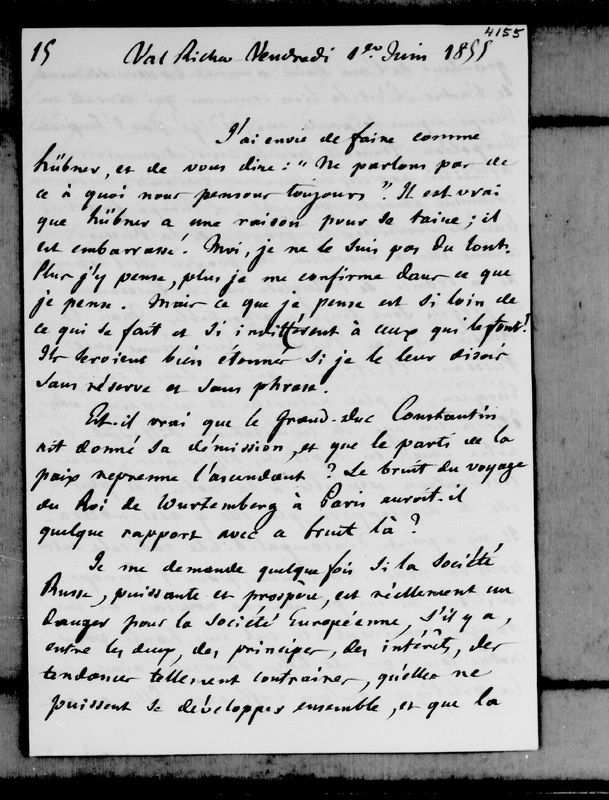 4155
15 Val Richer Vendredi 1er Juin 1855
J'ai envie de faire comme
hübner, et de vous dire : "Ne parlons pas de
ce à quoi nous pensons toujours". Il est vrai
que hübner a une raison pour se taire ; il
est embarrassé. Moi, je ne le suis pas du tout.
Plus j'y pense, plus je me confirme dans ce que
je pense. Mais ce que je pense est si loin de
ce qui se fait et si indifférent à ceux qui le font !
Ils seroient bien étonnés si je le leur disois
sans réserve et sans phrase.
Est-il vrai que le grand-duc Constantin
ait donné sa démission, et que le parti de la
paix reprenne l'ascendant ? Le bruit du voyage
du Roi de Wurtemberg à Paris auroit-il
quelque rapport avec ce bruit là ?
Je me demande quelquefois si la société
Russe, puissante et prospère, est réellement un
danger pour la société Européenne, s'il y a,
entre les deux, des principes, des intérêts, des
tendances tellement contraires, qu'elles ne
puissent se développer ensemble, et que la